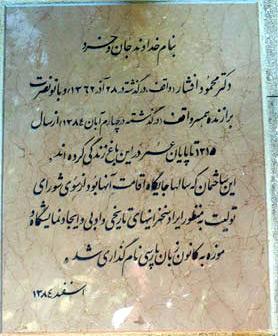 بنام خداوند جان و خرد
دکتر محمود افشار (واقف، درگذشته در ۲۸ آذر ۱۳۶۲) و بانو نصرت
برازنده همسر واقف (درگذشته در چهارم آبان ۱۳۸۴) از سال
۱۳۱۵ تا پایان عمر در این باغ زندگی کرده‌اند.
این ساختمان که سالها جایگاه اقامت آنها بود از سوی شورای
تولیت به منظور ایراد سخنرانیهای تاریخی و ادبی و ایجاد نمایشگاه و
موزه به کانون زبان پارسی نام گذاری شد.
اسفند ۱۳۸۴